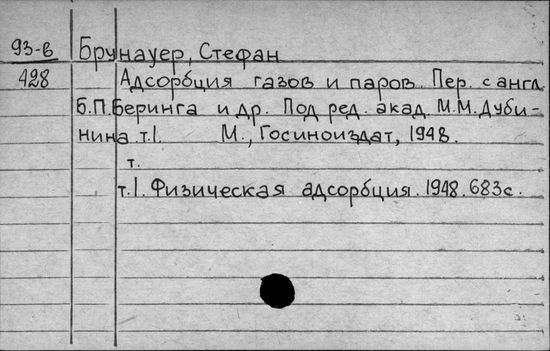 93-в Брунауер, Стефан
428 Адсорбция газов и паров. Пер. с англ.
Б.П.Беринга и др. Под ред. акад. М.М.Дуби-
нина. т.1. М., Госиноиздат, 1948.
т.
т.1. Физическая адсорбция. 1948. 683с.